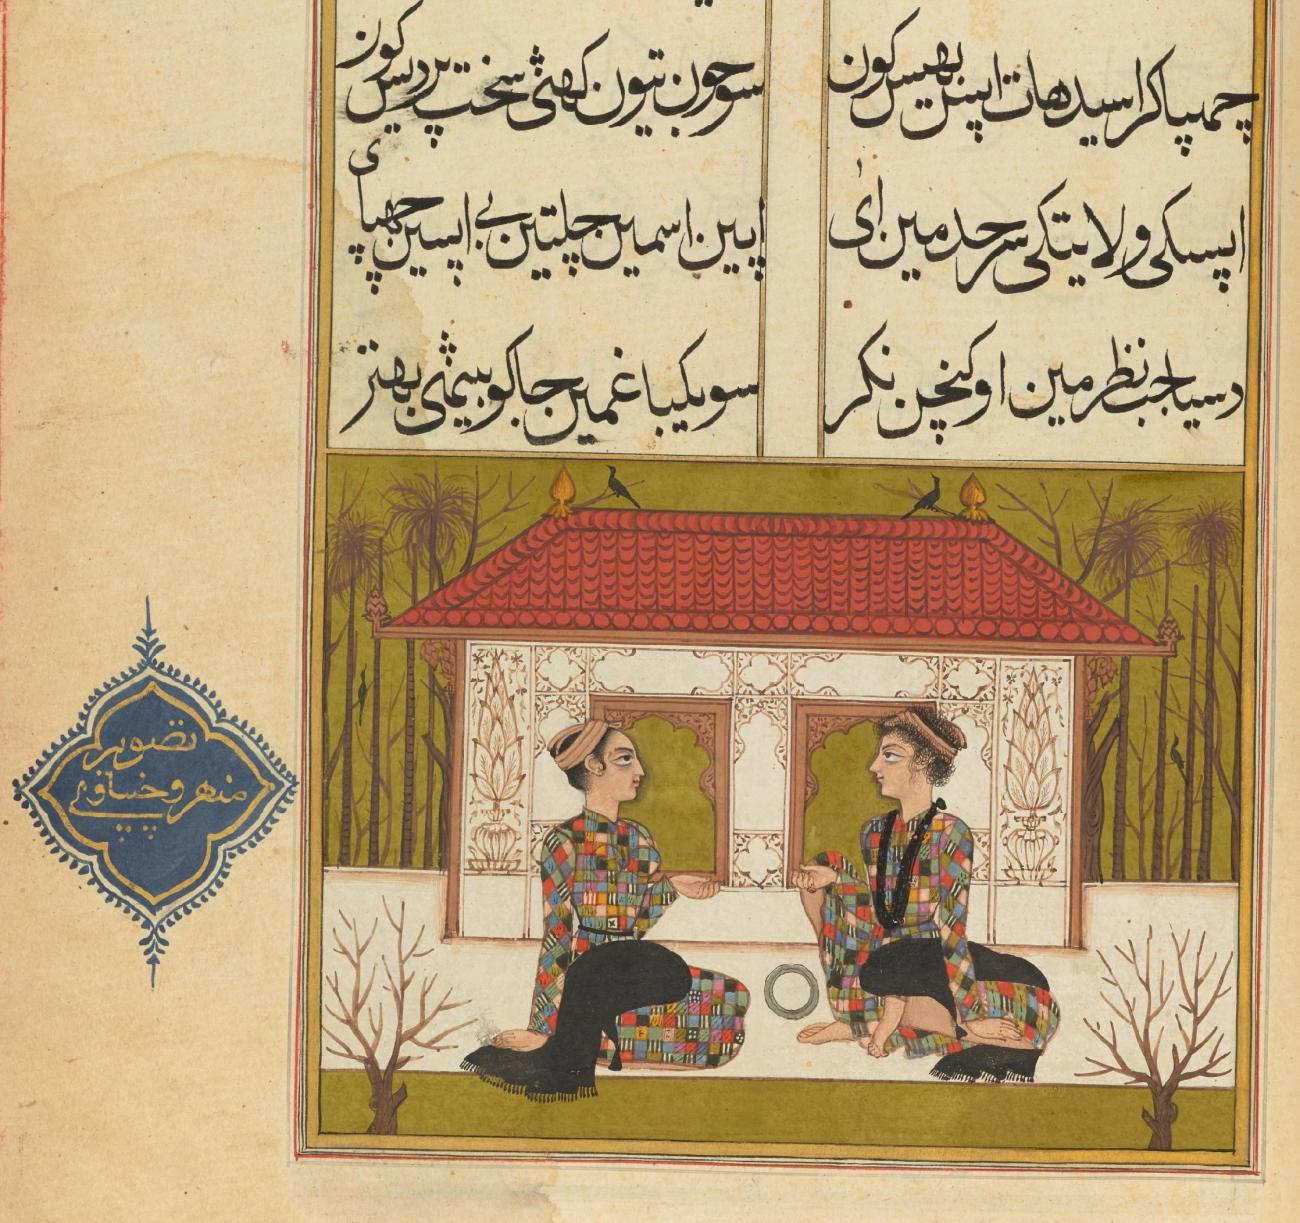 چهپیا کر اسید هات اپس بهیس کون سو جون تیون سخت پردیس کون
اپسکی ولایتکی سرحد مین ای اپین اسمین جلتین بی اپسین چهپای
دسیا جب نظر مین او کنچن نکر سو یکبا غمین جا کو بیٹهی بهتر
تصویر
منهر و